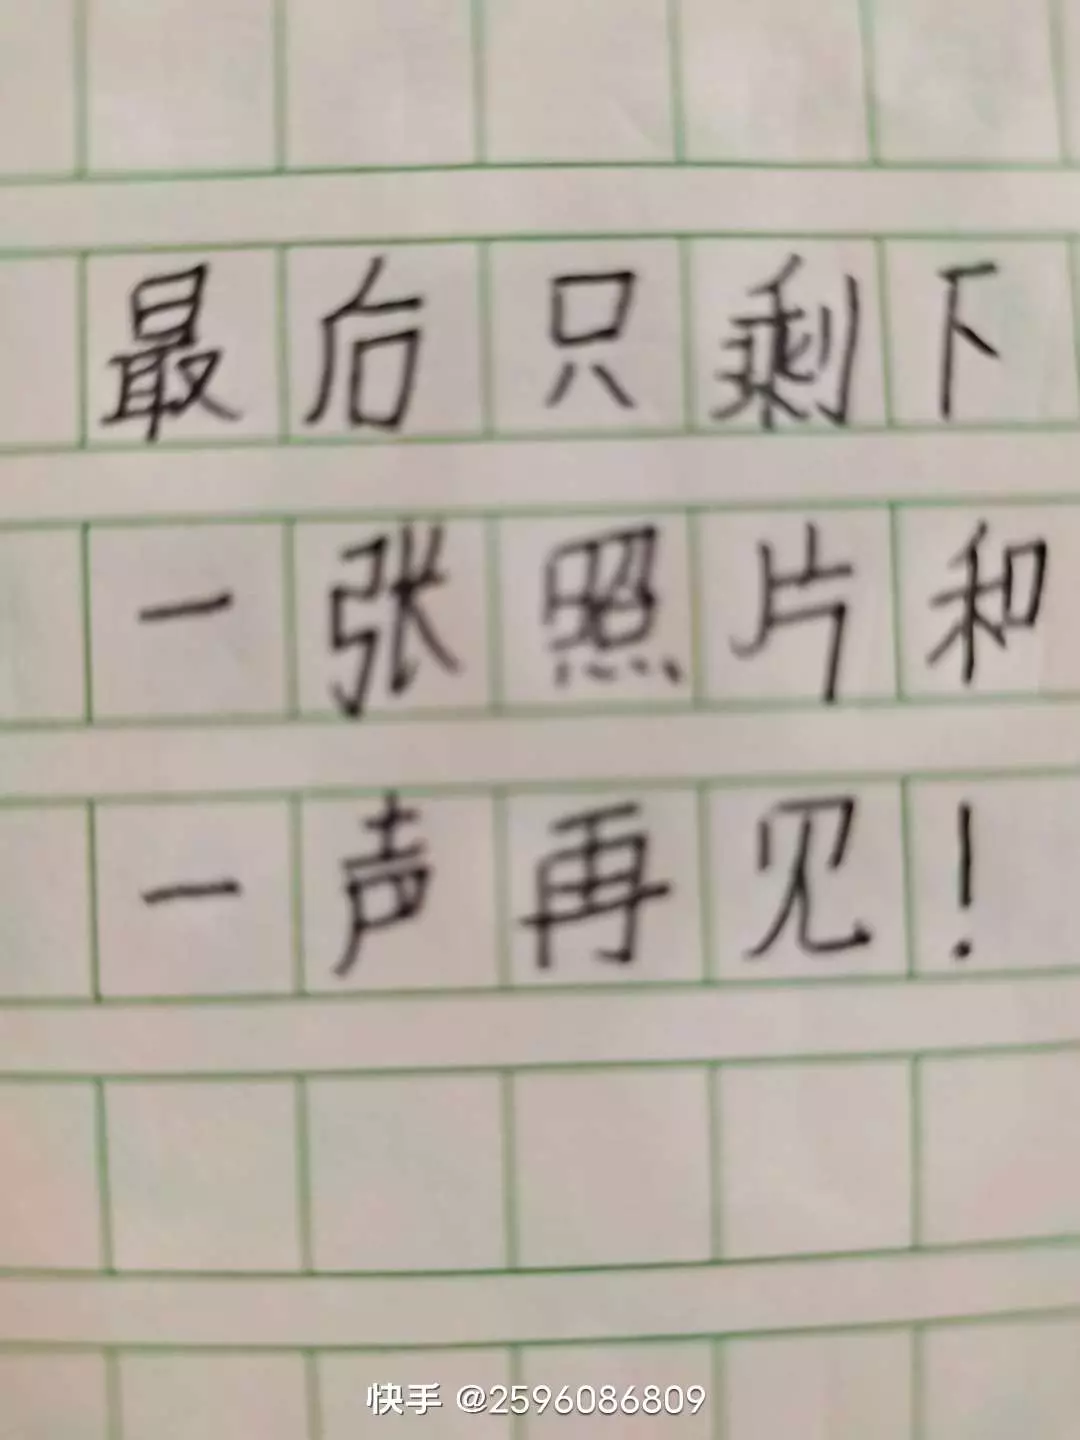 最后只剩下
一张照片和
一声再见！
快手 @2596086809